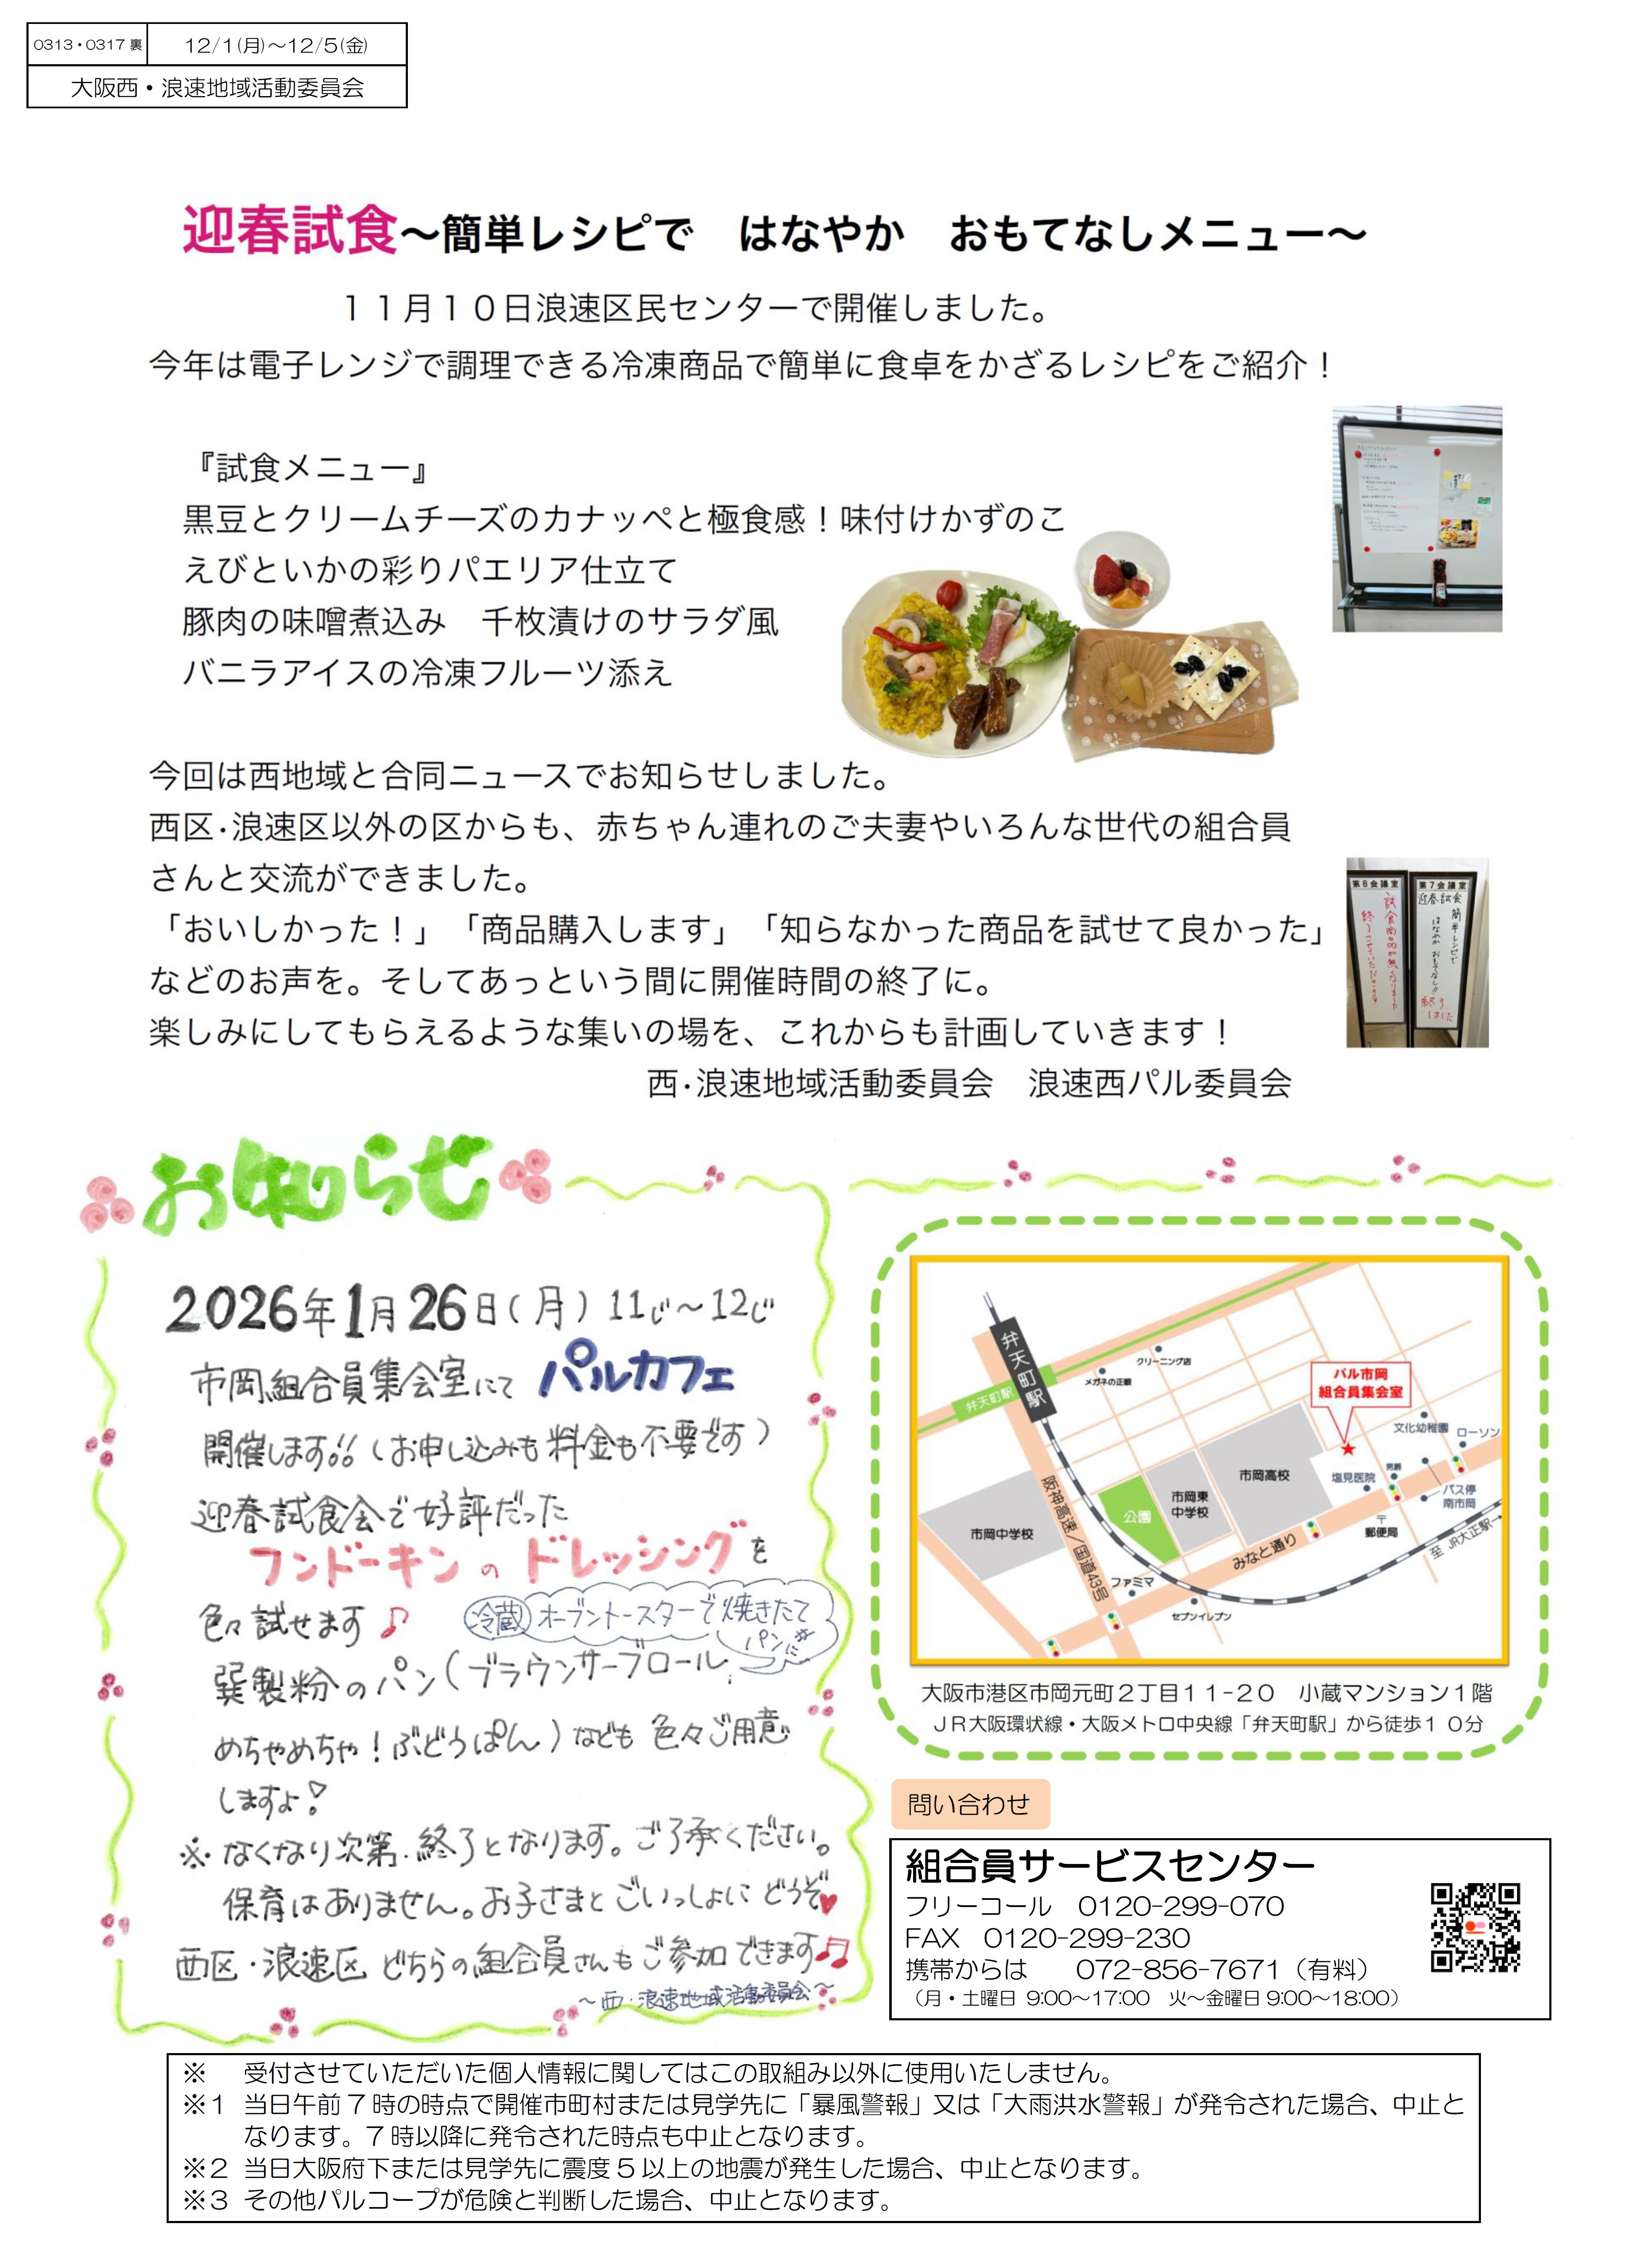 0313・0317 裏
12/1(月)～12/5(金)
大阪西・浪速地域活動委員会
迎春試食～簡単レシピで　はなやか　おもてなしメニュー～
１１月１０日浪速区民センターで開催しました。
今年は電子レンジで調理できる冷凍商品で簡単に食卓をかざるレシピをご紹介！
『試食メニュー』
黒豆とクリームチーズのカナッペと極食感！味付けかずのこ
えびといかの彩りパエリア仕立て
豚肉の味噌煮込み　千枚漬けのサラダ風
バニラアイスの冷凍フルーツ添え
今回は西地域と合同ニュースでお知らせしました。
西区･浪速区以外の区からも、赤ちゃん連れのご夫妻やいろんな世代の組合員
さんと交流ができました。
「おいしかった！」「商品購入します」「知らなかった商品を試せて良かった」
などのお声を。そしてあっという間に開催時間の終了に。
楽しみにしてもらえるような集いの場を、これからも計画していきます！
西･浪速地域活動委員会　浪速西パル委員会
第8会議室
試食商品が無くなりました
終了させていただきます
第7会議室
迎春試食
簡単レシピで
はなやか おもてなし!!
終了しました
お知らせ
2026年1月26日(月) 11じ～12じ
市岡組合員集会室にて パルカフェ
開催します!!(お申し込みも料金も不要です)
迎春試食会で好評だった
フンドーキンのドレッシングを
色々試せます♪
冷蔵 オーブントースターで焼きたてパンに
巽製粉のパン(ブラウンサーブロール,
めちゃめちゃ！ぶどうぱん)なども 色々ご用意
しますよ！
※なくなり次第.終了となります。ご了承ください。
保育はありません。お子さまとごいっしょにどうぞ♥
西区・浪速区 どちらの組合員さんもご参加できます♫
～西・浪速地域活動委員会～
弁天町駅
弁天町駅
クリーニング店
メガネの正観
パル市岡
組合員集会室
文化幼稚園
ローソン
市岡高校
塩見医院
男爵
バス停
南市岡
市岡東
中学校
公園
〒
郵便局
市岡中学校
阪神高速／国道43号
みなと通り
至 JR大正駅→
ファミマ
セブンイレブン
大阪市港区市岡元町２丁目１１-２０　小蔵マンション１階
ＪＲ大阪環状線・大阪メトロ中央線「弁天町駅」から徒歩１０分
問い合わせ
組合員サービスセンター
フリーコール　0120-299-070
FAX　0120-299-230
携帯からは　072-856-7671（有料）
（月・土曜日 9:00～17:00　火～金曜日 9:00～18:00）
※　受付させていただいた個人情報に関してはこの取組み以外に使用いたしません。
※１ 当日午前７時の時点で開催市町村または見学先に「暴風警報」又は「大雨洪水警報」が発令された場合、中止と
なります。７時以降に発令された時点も中止となります。
※２ 当日大阪府下または見学先に震度５以上の地震が発生した場合、中止となります。
※３ その他パルコープが危険と判断した場合、中止となります。